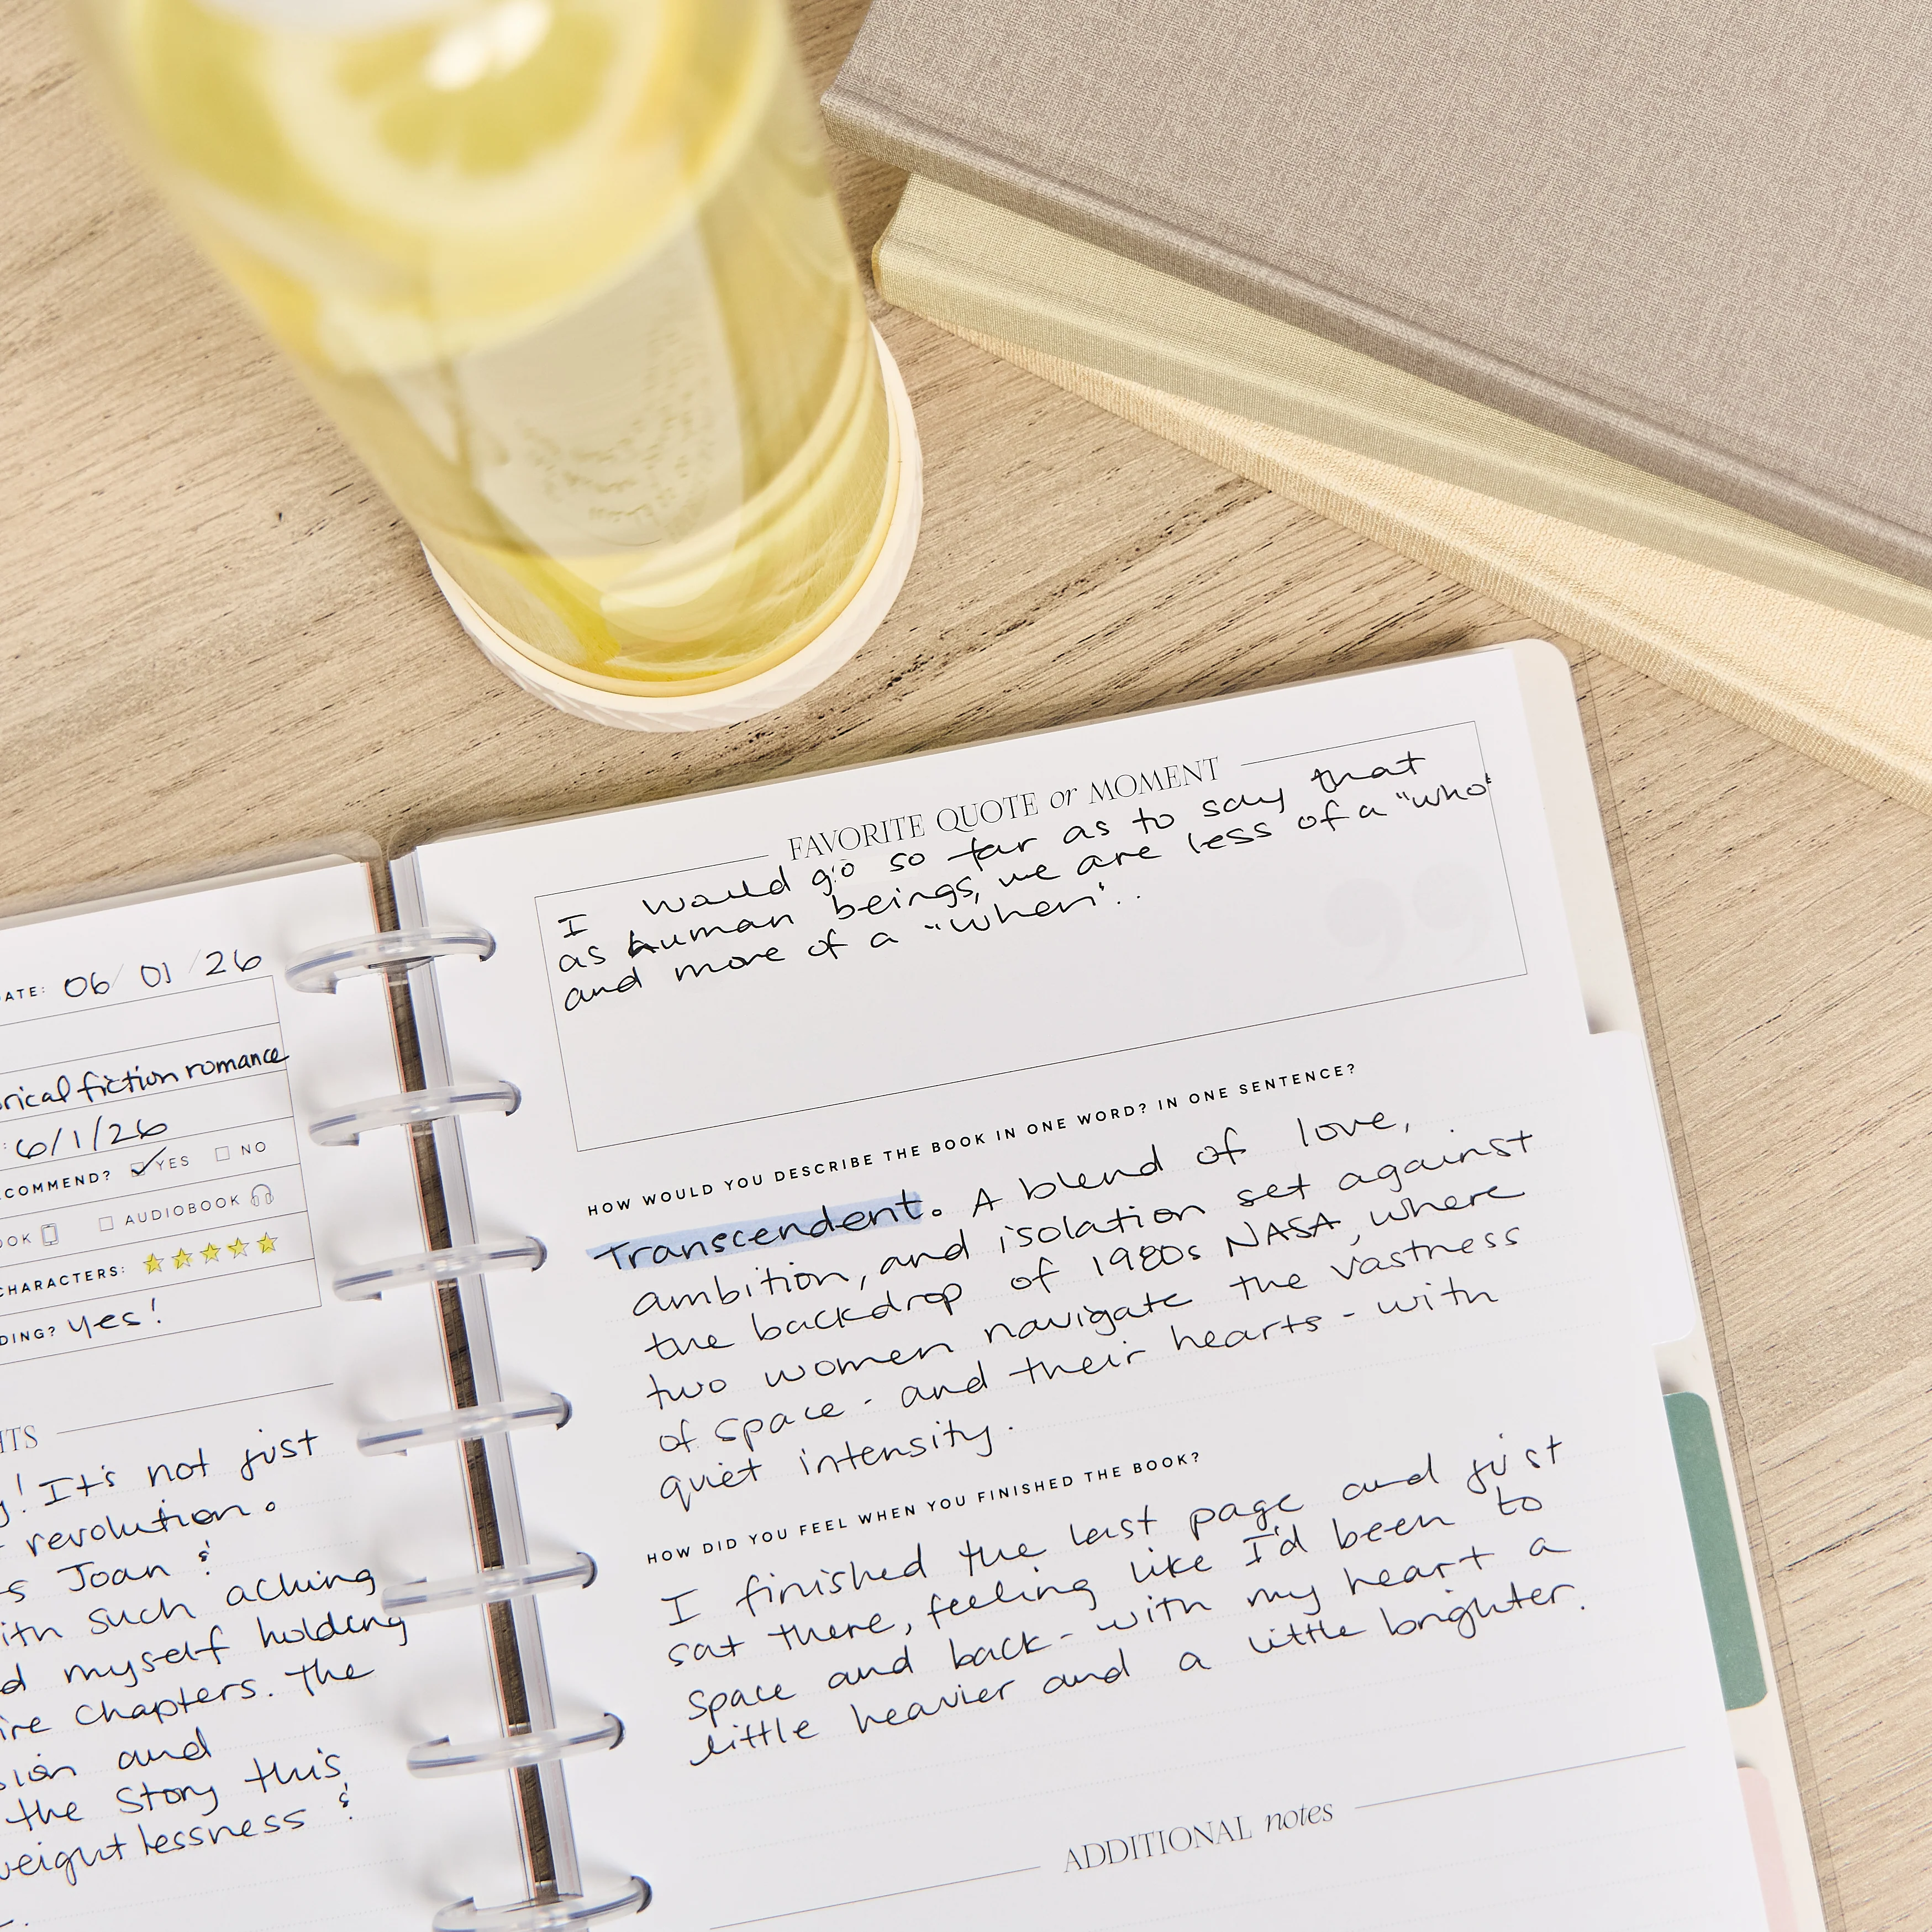 DATE: 06/01/26
fiction romance
: 6/1/26
COMMEND? YES NO
OOK AUDIOBOOK
CHARACTERS:
DING? yes!
HTS
! It's not just
revolution.
Joan &
such aching
myself holding
chapters. The
and
the story this
weightlessness &
FAVORITE QUOTE or MOMENT
I would go so far as to say that
as human beings, we are less of a "who"
and more of a "when"..
HOW WOULD YOU DESCRIBE THE BOOK IN ONE WORD? IN ONE SENTENCE?
Transcendent. A blend of love,
ambition, and isolation set against
the backdrop of 1980s NASA, where
two women navigate the vastness
of space - and their hearts - with
quiet intensity.
HOW DID YOU FEEL WHEN YOU FINISHED THE BOOK?
I finished the last page and just
sat there, feeling like I'd been to
space and back - with my heart a
little heavier and a little brighter.
ADDITIONAL notes